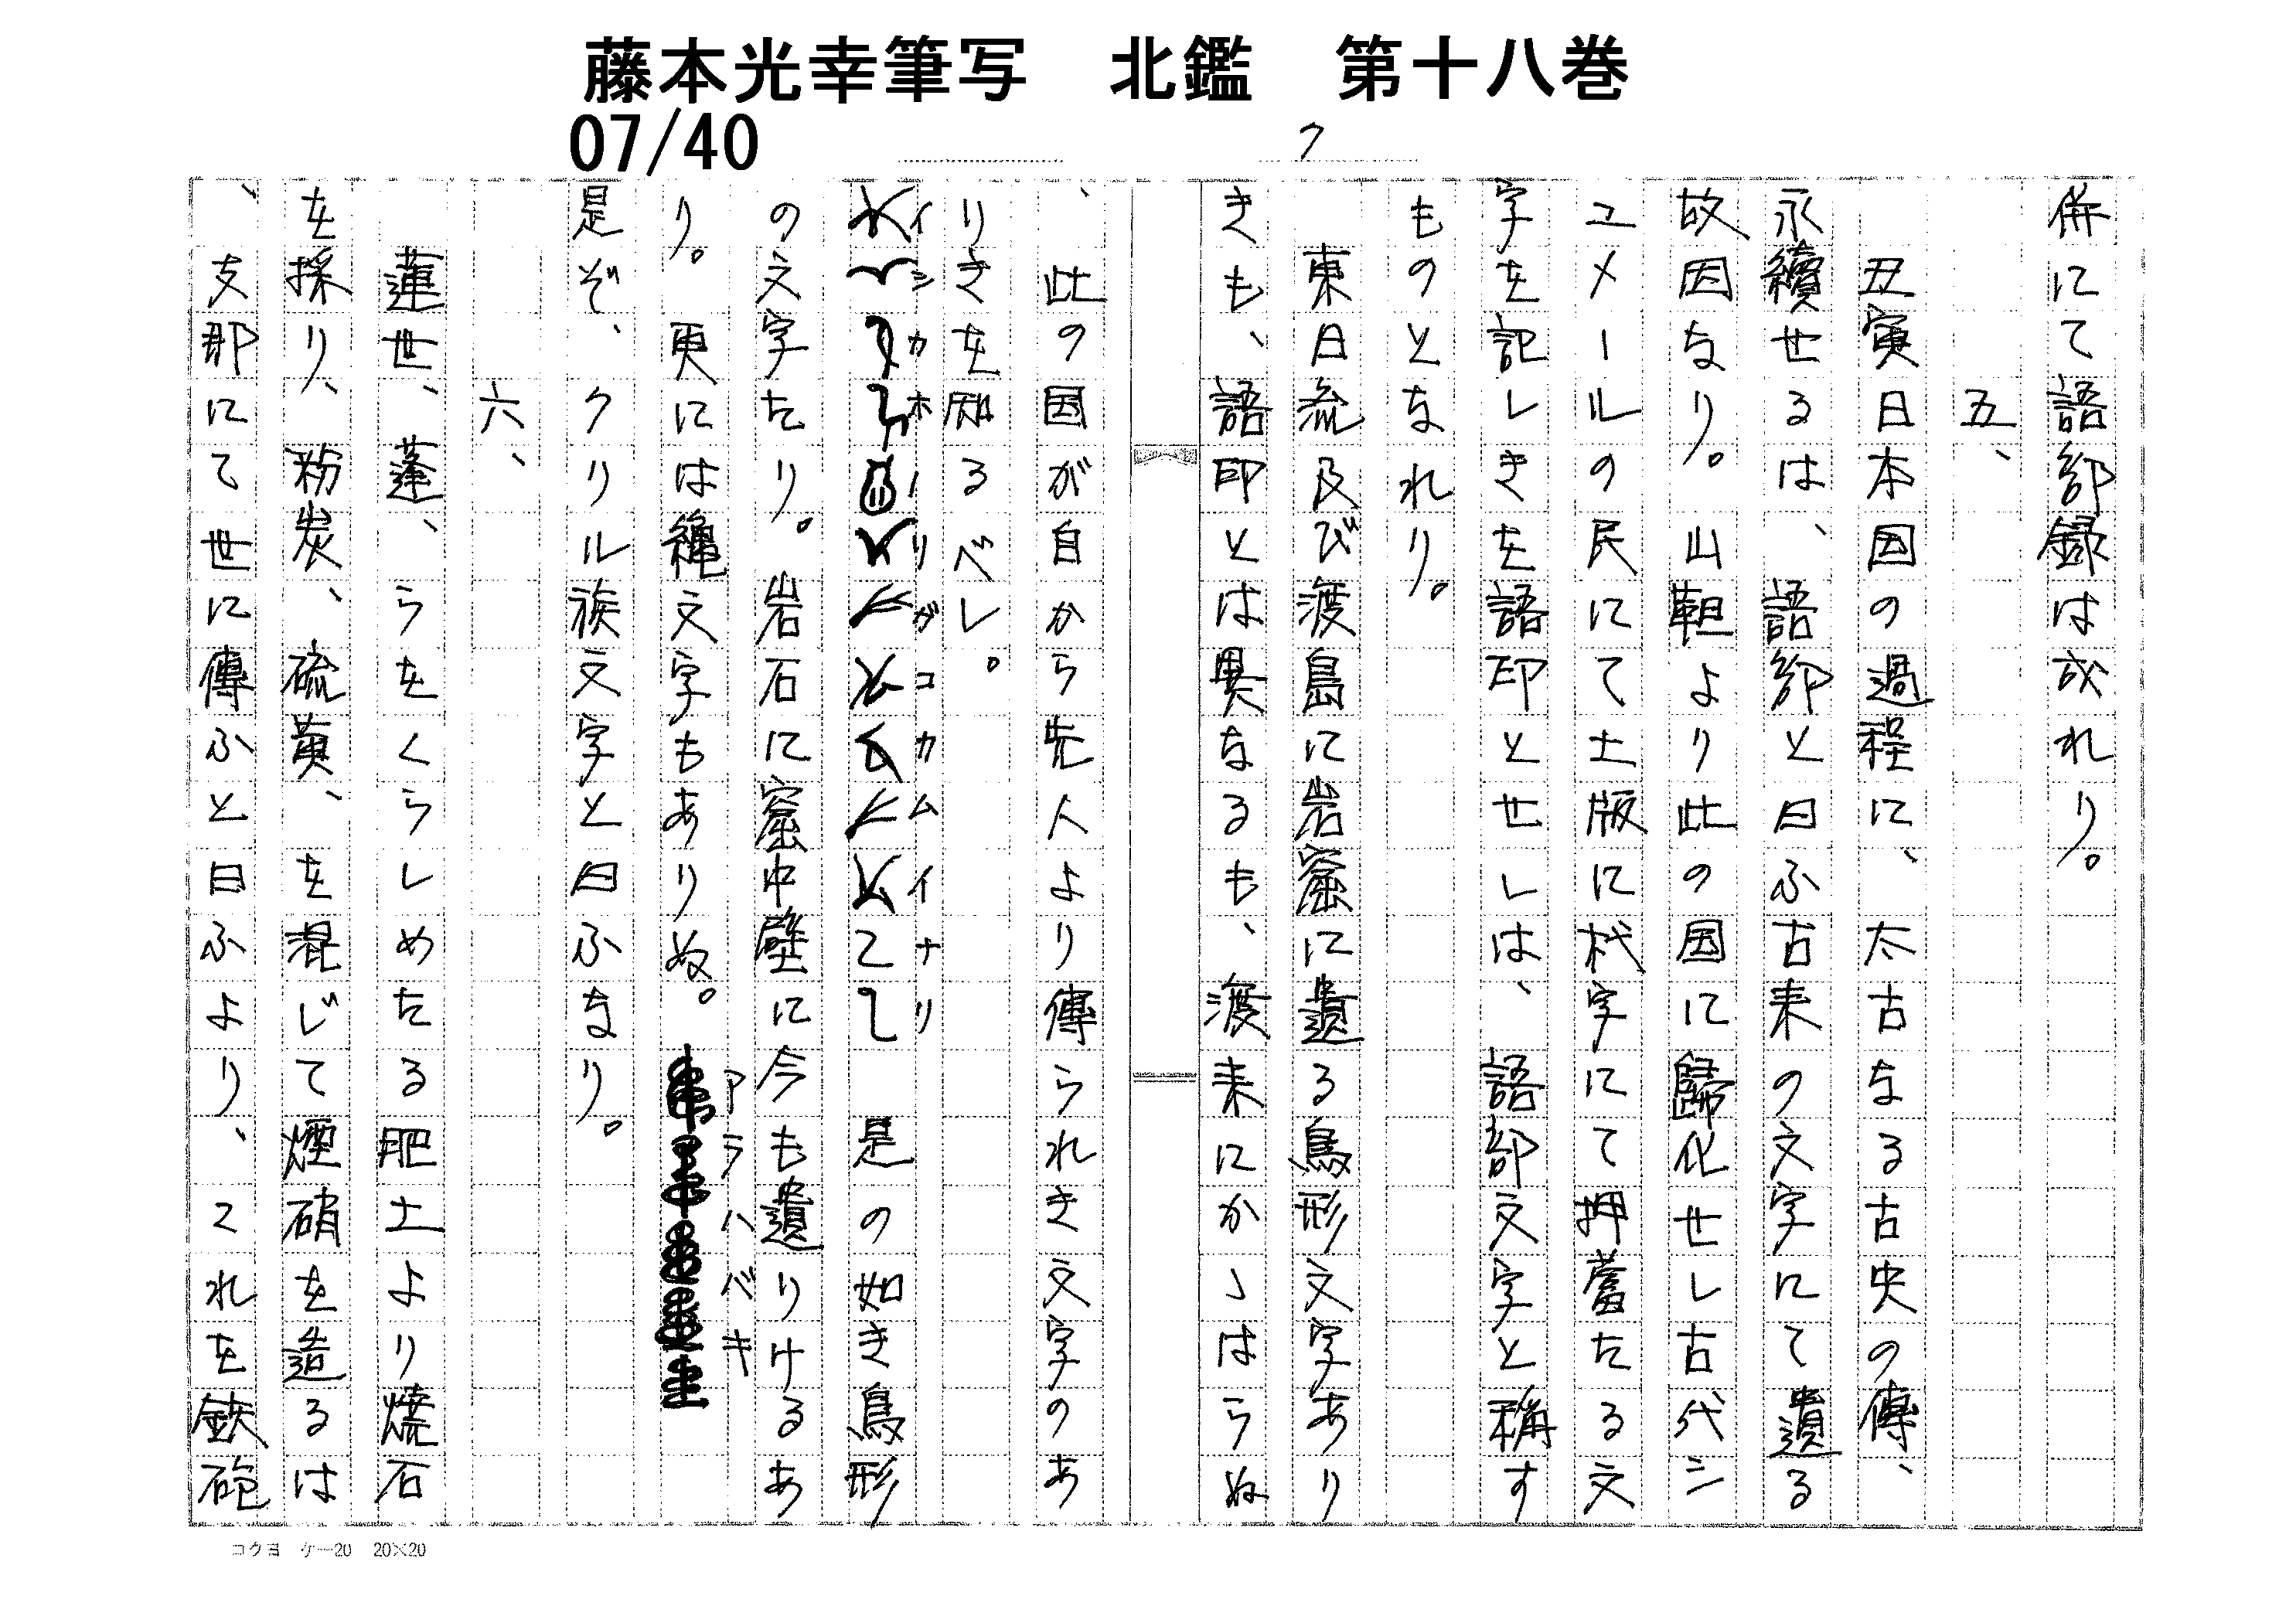 藤本光幸筆写　北鑑　第十八巻
07/40
7
併にて語部録は成れり。
五、
丑寅日本国の過程に、太古なる古史の傳、
永續せるは、語部と曰ふ古来の文字にて遺る
故因なり。山靼より此の国に歸化せし古代シ
ュメールの民にて土版に杙字にて押蓄たる文
字を記しきを語印とせしは、語部文字と稱す
ものとなれり。
東日流及び渡島に岩窟に遺る鳥形文字あり
きも、語印とは異なるも、渡来にかゝはらぬ
、此の国が自から先人より傳られき文字のあ
りきを知るべし。
イシカホノリガコカムイナリ
是の如き鳥形
の文字たり。岩石に窟中壁に今も遺りけるあ
り。更には縄文字もありぬ。
アラハバキ
是ぞ、クリル族文字と曰ふなり。
六、
蓮世、蓬、らをくらしめたる肥土より焼石
を採り、粉炭、硫黄、を混じて煙硝を造るは
、支那にて世に傳ふと曰ふより、これを鉄砲
コクヨ　ケー20　20×20